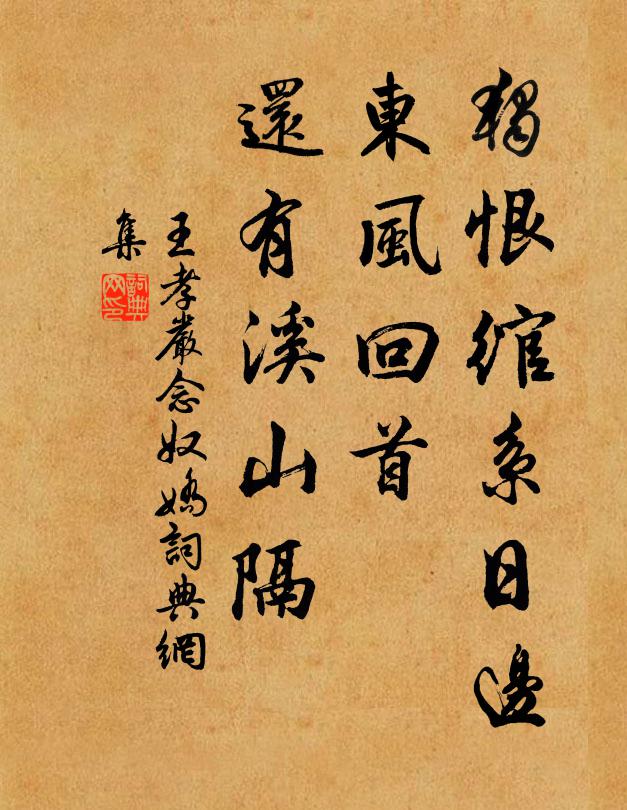 獨恨綰系日邊
東風回首
還有溪山隔
王孝嚴念奴嬌詞典網
集
詞典
网印